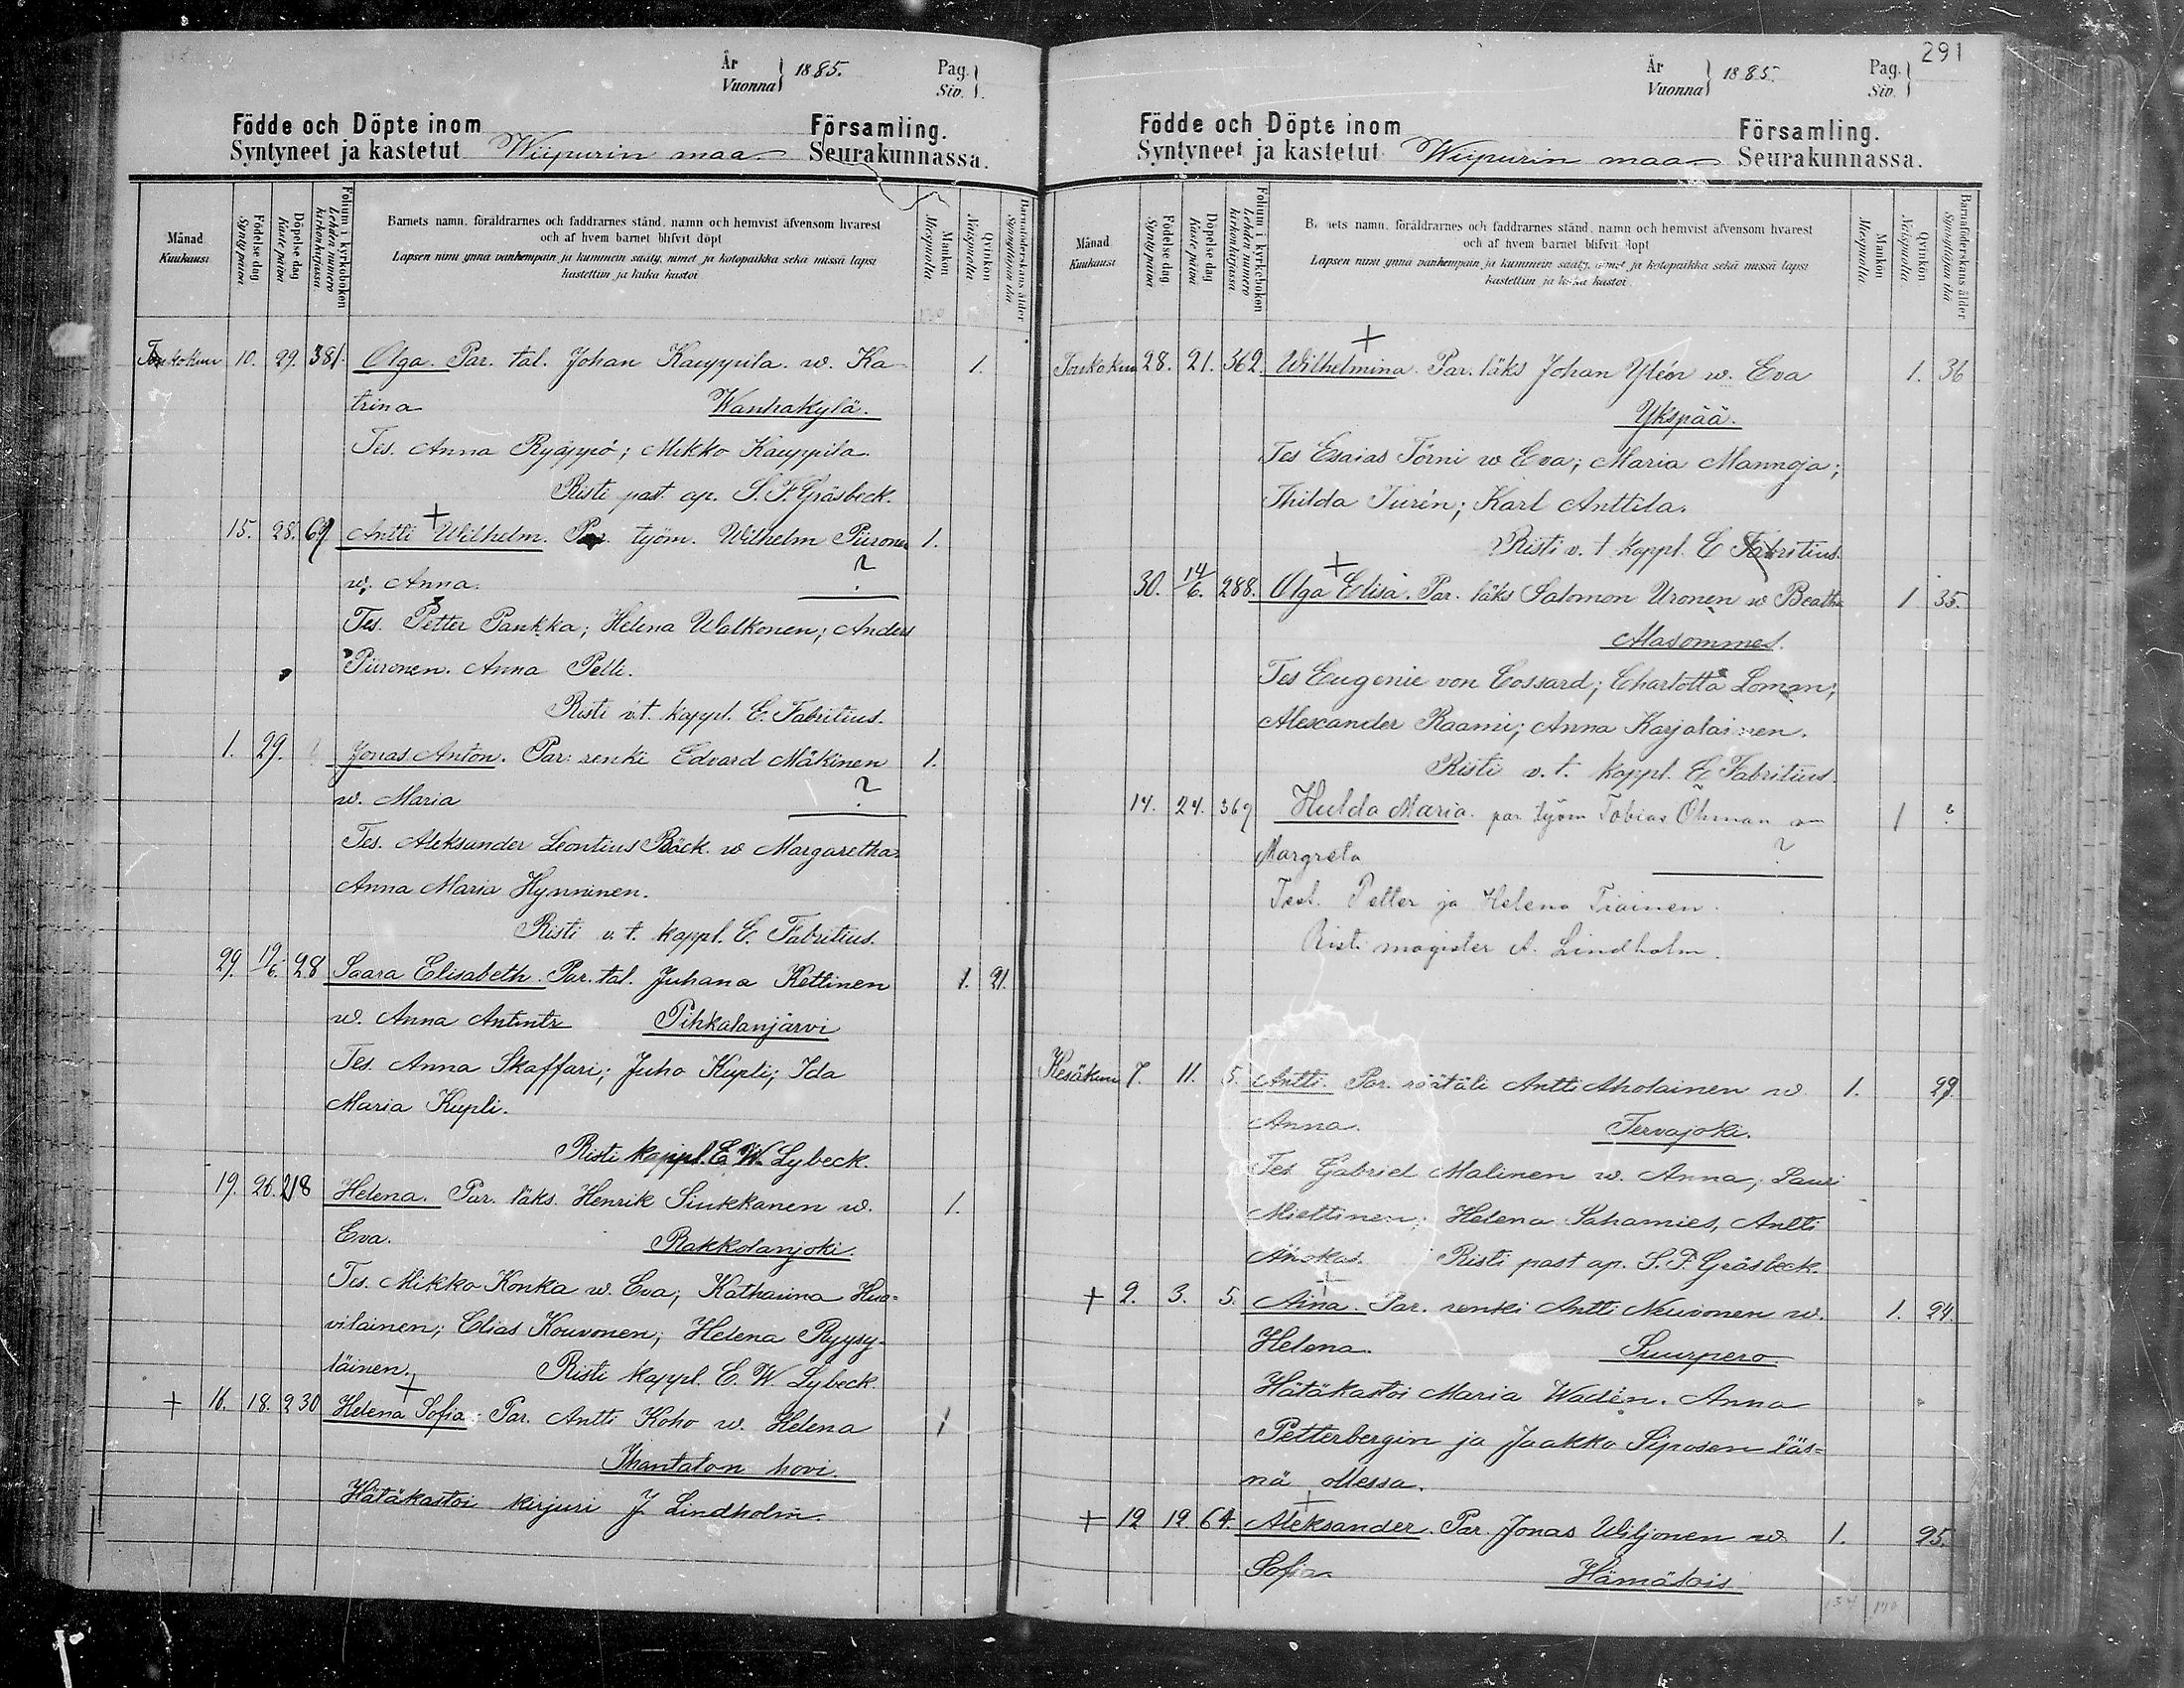 År
Vuonna } 1885.
Pag.
Siv.
Födde och Döpte inom Församling.
Syntyneet ja kastetut Wiipurin maa- Seurakunnassa.
Månad
Kuukausi
Födelse dag
Syntymäpäivä
Döpelse dag
Kaste päivä
Folium i kyrkoboken
Lehden numero kirkonkirjassa
Barnets namn, föräldrarnes och faddrarnes stånd, namn och hemvist äfvensom hvarest
och af hvem barnet blifvit döpt
Lapsen nimi ynnä vanhempain ja kummein sääty, nimet ja kotopaikka sekä missä lapsi
kastettiin ja kuka kastoi
Mankön
Miespuolia
Qvinkön
Naispuolia
Barnaföderskans ålder
Synnyttäjän ikä
Toukokuu 10. 29. 381. Olga. Par. tal. Johan Kauppila. w. Ka- 1.
trina Wanhakylä.
Tes. Anna Ryäppö; Mikko Kauppila.
Risti past. ap. S. F. Gräsbeck.
15. 28. 69 Antti + Wilhelm. Par. työm. Wilhelm Piironen 1.
w. Anna. ?
Tes. Petter Pankka; Helena Walkonen; Anders
Piironen. Anna Pelli.
Risti v.t. kappl. E. Fabritius.
1. 29. Jonas Anton. Par. renki Edvard Mäkinen 1.
w. Maria ?
Tes. Aleksander Leontius Bäck w Margaretha
Anna Maria Hynninen.
Risti v. t. kappl. E. Fabritius.
29. 19/6. 28 Saara Elisabeth. Par. tal. Juhana Kettinen 1. 21.
w. Anna Antintr Pihkalanjärvi
Tes. Anna Skaffari; Juho Kupli; Ida
Maria Kupli.
Risti kappl. E. W. Lybeck.
19. 26. 218 Helena. Par. läks. Henrik Sinkkanen w. 1.
Eva. Rakkolanjoki.
Tes. Mikko Konka w. Eva; Katharina Huo-
vilainen; Elias Kouvonen; Helena Ryysy-
läinen. Risti kappl. E. W. Lybeck.
+ 16. 18. 230 Helena Sofia + Par. Antti Koho w. Helena 1
Ihantalan hovi.
Hätäkastoi kirjuri J. Lindholm.
291
År
Vuonna } 1885.
Pag.
Siv.
Födde och Döpte inom Församling.
Syntyneet ja kastetut Wiipurin maa- Seurakunnassa.
Månad
Kuukausi
Födelse dag
Syntymäpäivä
Döpelse dag
Kaste päivä
Folium i kyrkoboken
Lehden numero kirkonkirjassa
B. nets namn, föräldrarnes och faddrarnes stånd, namn och hemvist äfvensom hvarest
och af hvem barnet blifvit döpt
Lapsen nimi ynnä vanhempain ja kummein sääty, nimet ja kotopaikka sekä missä lapsi
kastettiin ja kuka kastoi
Mankön
Miespuolia
Qvinkön
Naispuolia
Barnaföderskans ålder
Synnyttäjän ikä
Toukokuu 28. 21. 362. Wilhelmina + Par. läks Johan Yleén w. Eva 1. 36
Ykspää.
Tes Esaias Törni w Eva; Maria Mannoja;
Thilda Turén; Karl Anttila.
Risti v. t kappl. E Fabritius.
30. 14/6. 288. Olga Elisa. + Par. läks Salomon Uronen w Beatha 1 35.
Alasommes.
Tes Eugenie von Cossard; Charlotta Loman;
Alexander Raami; Anna Karjalainen.
Risti v. t. kappl. E Fabritius.
14. 24. 369 Hulda Maria. par. työm Tobias Öhman w 1 ?
Margreta ?
Test. Petter ja Helena Tiainen.
Risti magister A. Lindholm.
Kesäkuu 7. 11. 5. Antti. Par. räätäli Antti Aholainen w 1. 27.
Anna. Tervajoki.
Tes Gabriel Malinen w. Anna; Lauri
Miettinen; Helena Sahamies, Antti
Ahokas. Risti past ap. S. F. Gräsbeck.
+ 2. 3. 5. Aina. + Par. renki Antti Neuvonen w. 1. 24.
Helena. Suurpero
Hätäkastoi Maria Wadén. Anna
Petterbergin ja Jaakko Siposen läs-
nä ollessa.
+ 12 12. 64. Aleksander. + Par. Jonas Wiljonen w 1. 25.
Sofia. Hämälois